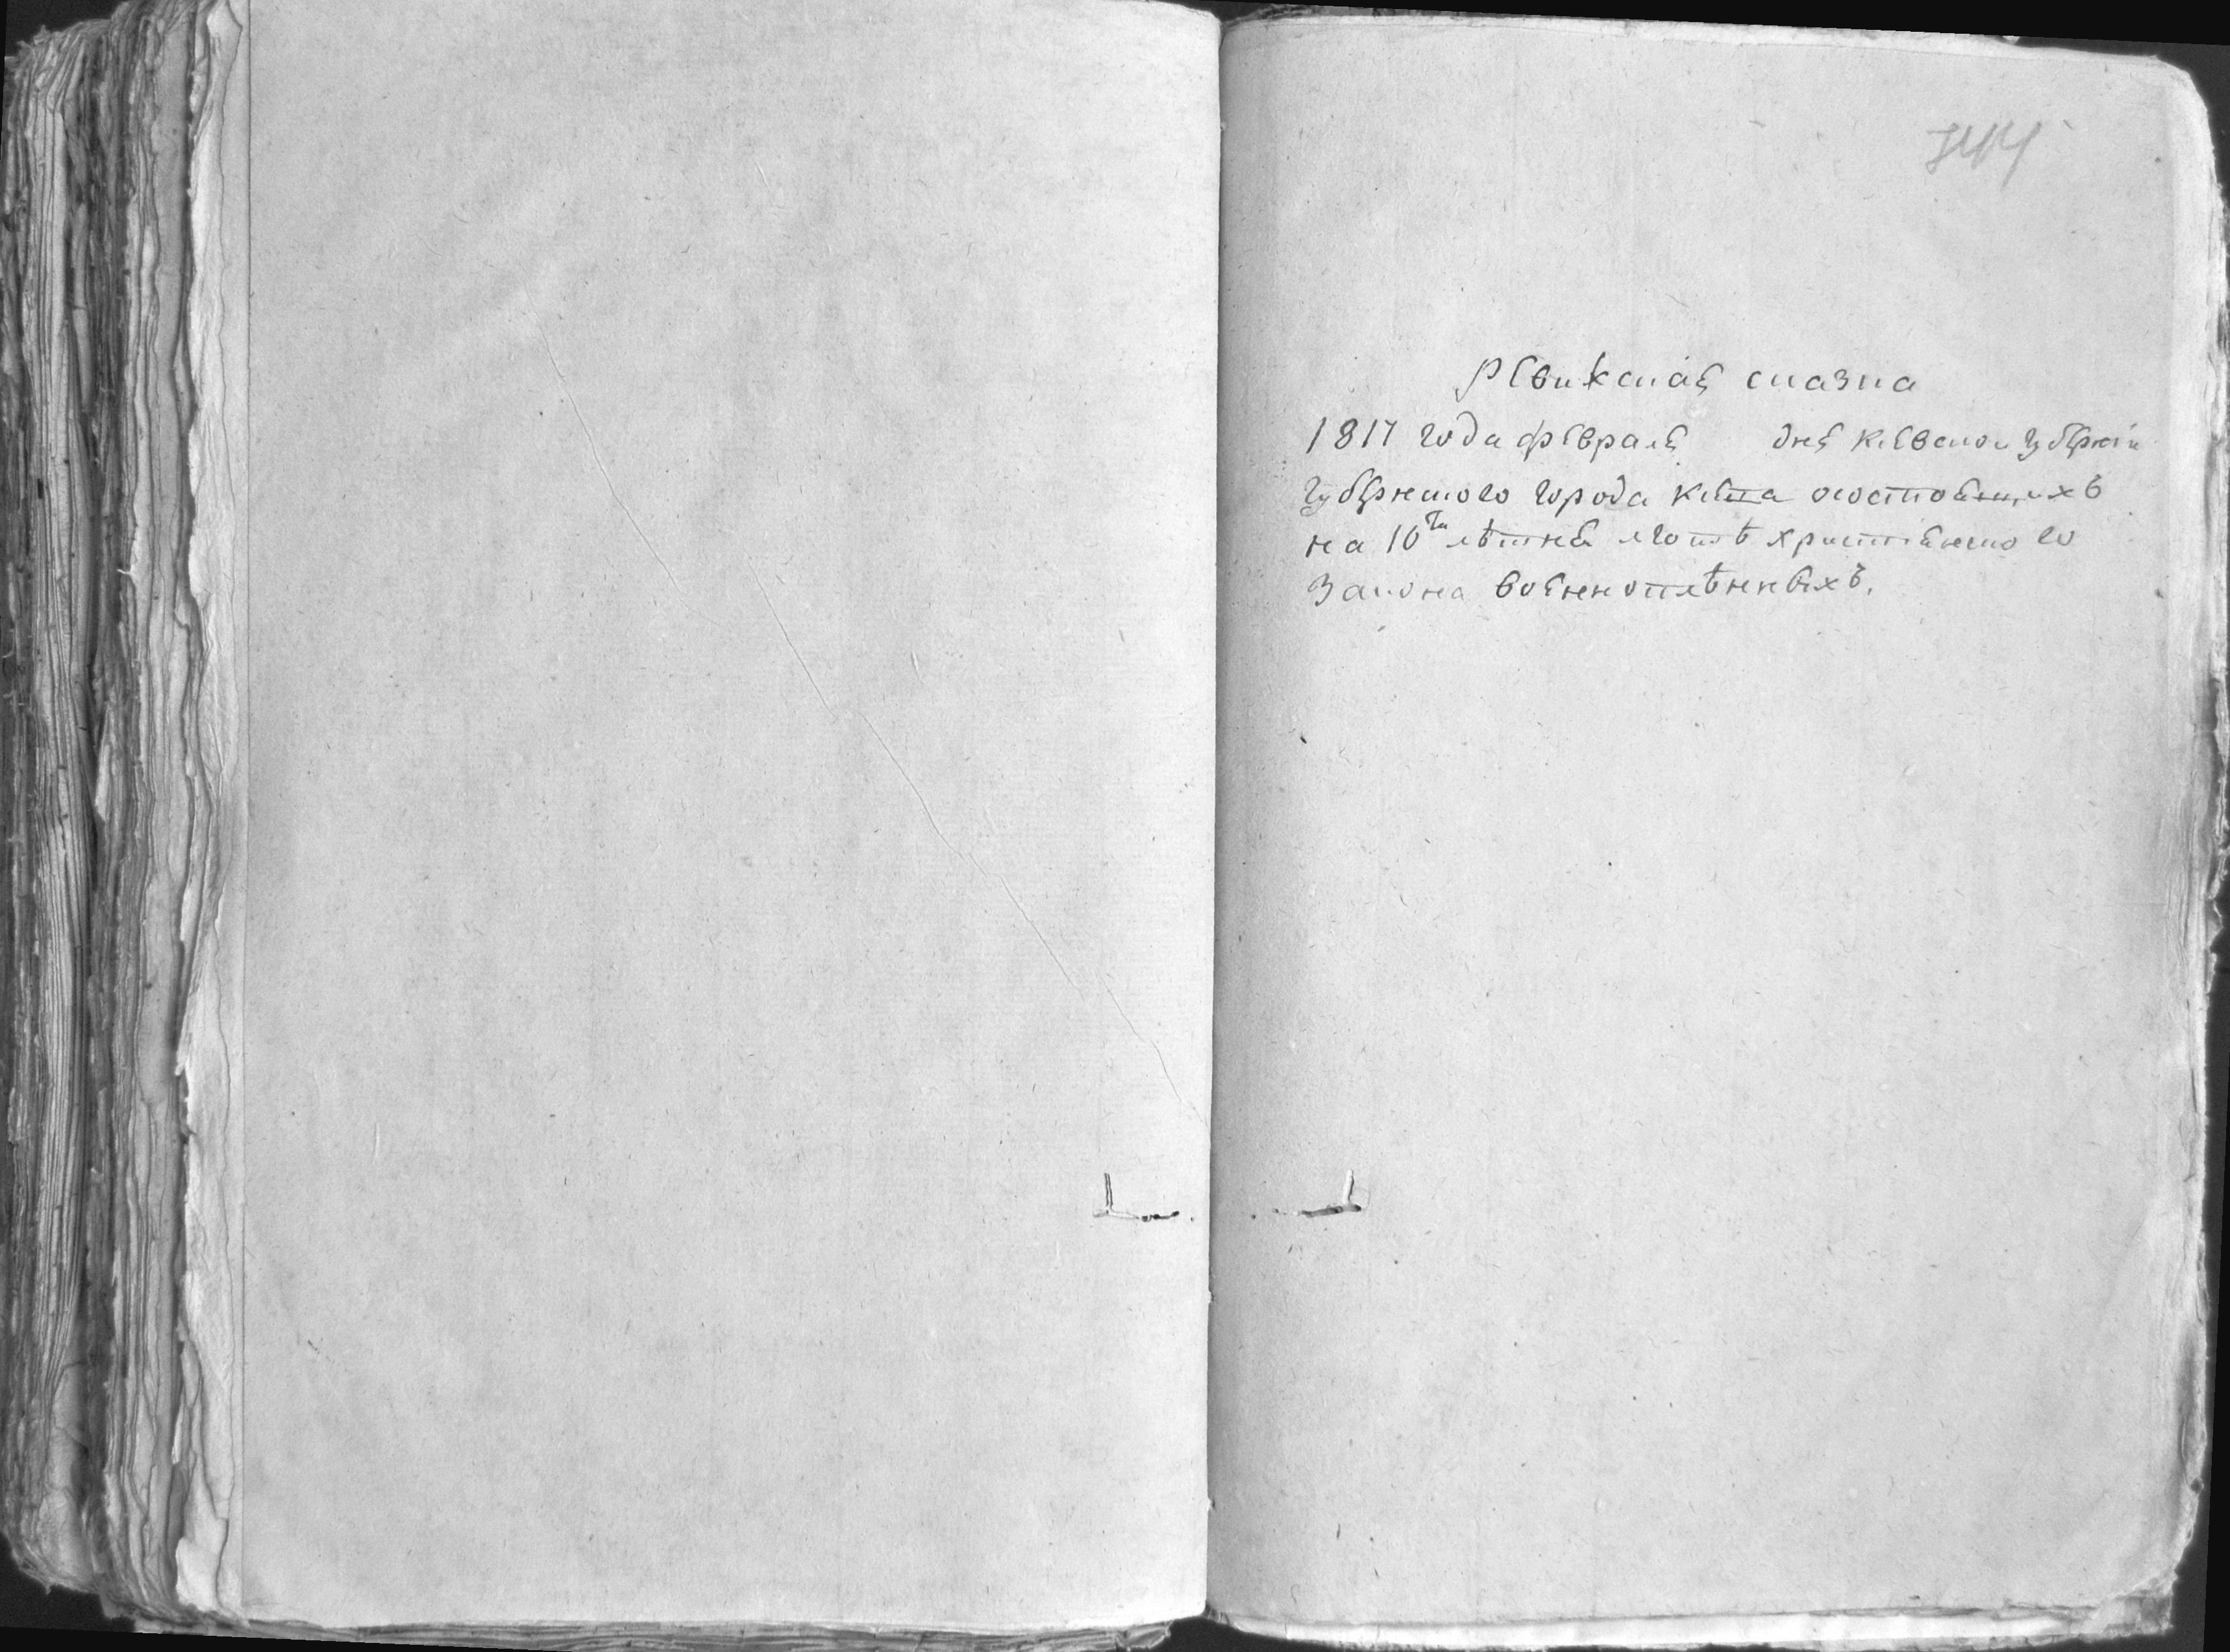 744
Ревизская сказка
1817 года февраля дня киевской губернiи
губернского города киева состоящихъ
на 10ти лѣтней льготѣ христiянского
закона военноплѣнныхъ.